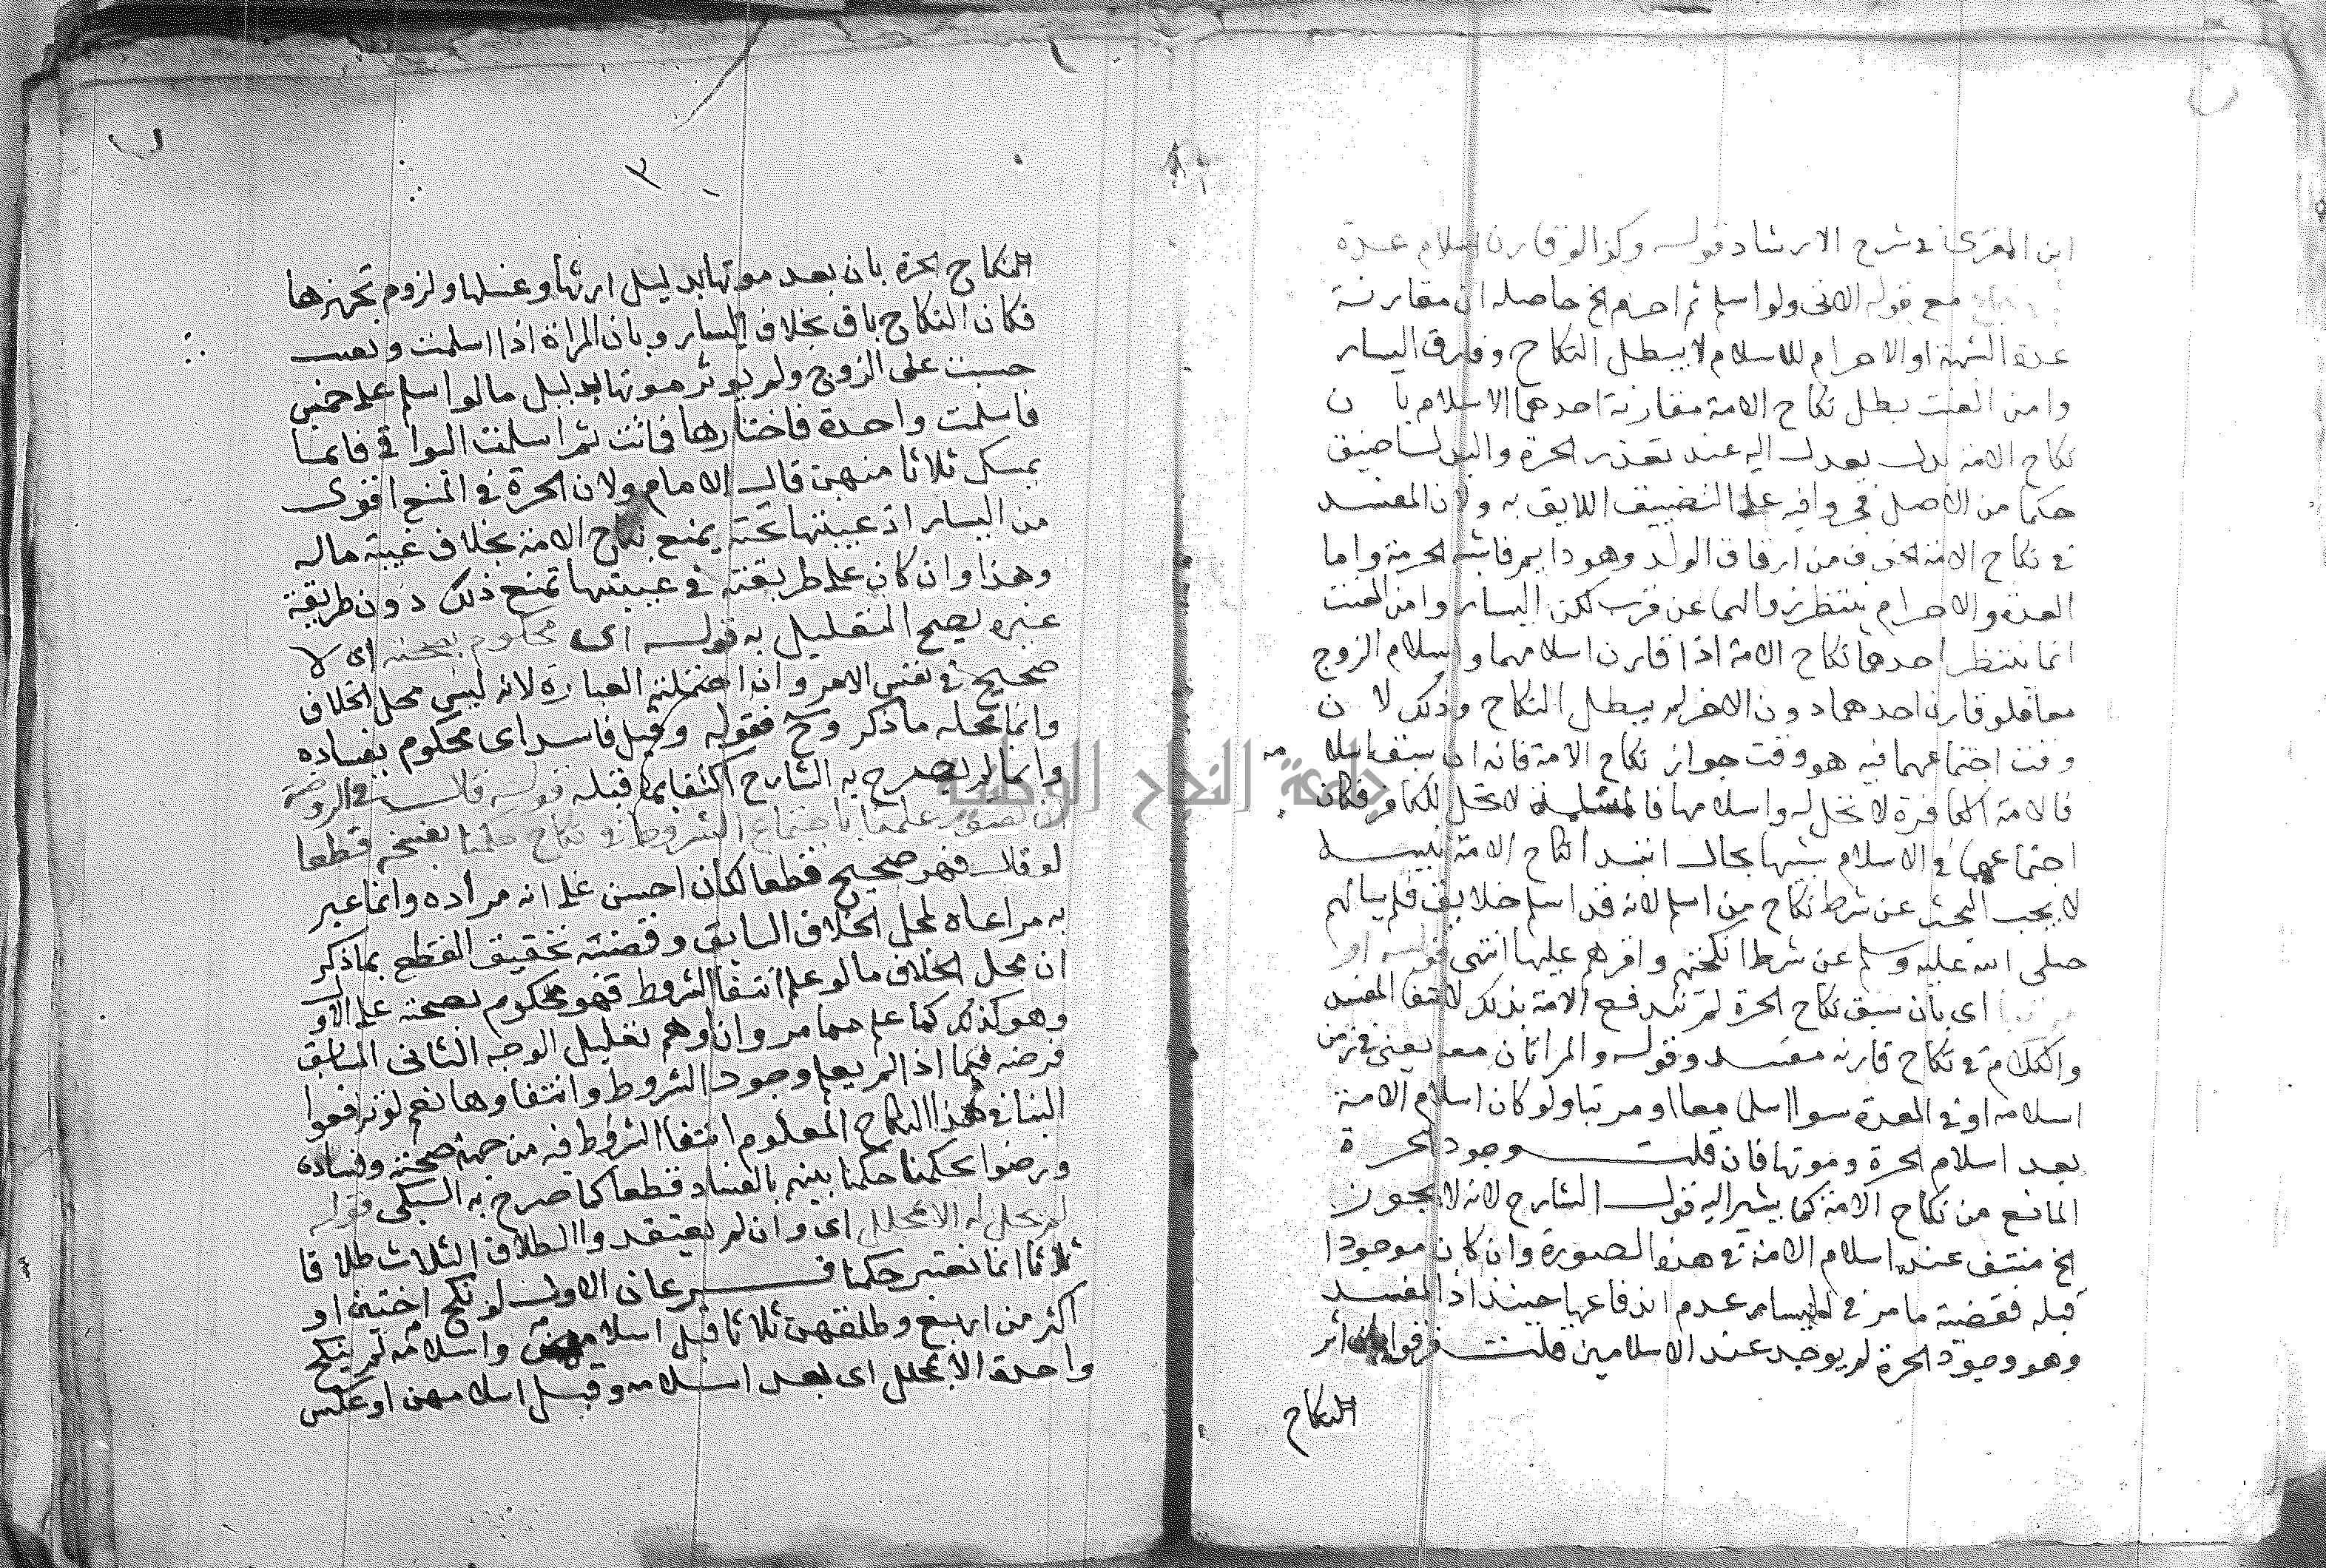 ابن المقرى في شرح الارشاد قوله وكذا لو قارن اسلام عدة
مع قوله الاتى ولو اسلم ثم احرم الخ حاصله ان مقارنة
عدة الشبهة او الاحرام للاسلام لا يبطل النكاح وفارق اليسار
وامن العنت بطل نكاح الامة مقارنة احدهما الاسلام بان
نكاح الامة بدل يعدل اليه عند تعذر الحرة والبدل اضيق
حكما من الاصل فجروا فيه على التضييق اللايق به ولان المفسد
في نكاح الامة الخوف من ارقاق الولد وهو دايم فاشبه الحرمة واما
العدة والاحرام ينتظر زوالهما عن قرب لكن اليسار وامن العنت
انما ينتظر احدهما نكاح الامة اذا قارن اسلامهما واسلام الزوج
معا فلو قارن احدهما دون الاخر لم يبطل النكاح وذلك لان
وقت اجتماعهما فيه هو وقت جواز نكاح الامة فانه ان سبق اسلامه
فالامة الكافرة لا تحل له واسلامها فالمسلمة لا تحل للكافر فكان
اجتماعهما في الاسلام شبيها بحال ابتدا نكاح الامة تنبيه
لا يجب البحث عن شرط نكاح من اسلم لانه قد اسلم خلايق فلم يسالهم
صلى الله عليه وسلم عن شرط انكحتهم واقرهم عليها انتهى قوله او
اى بان سبق نكاح الحرة لم تندفع الامة بذلك لانتفا المفسد
والكلام في نكاح قارنه مفسد وقوله والمراتان معه يعنى في زمن
اسلامه او في العدة سوا اسلما معا او مرتبا ولو كان اسلام الامة
بعد اسلام الحرة وموتها فان قلت وجود الحرة
المانع من نكاح الامة كما يشير اليه قول الشارح لانه لا يجوز
الخ منتف عند اسلام الامة في هذه الصورة وان كان موجودا
قبله فقضية ما مر في اليسار عدم اندفاعها حينئذ اذ المفسد
وهو وجود الحرة لم يوجد عند الاسلامين قلت فرقوا بان اثر
النكاح
٣
النكاح الحرة بان بعد موتها بدليل ارثها وغسلها ولزوم تجهيزها
فكان النكاح باق بخلاف اليسار وبان المراة اذا اسلمت وتعينت
حسبت على الزوج ولم يوثر موتها بدليل ما لو اسلم على خمس
فاسلمت واحدة فاختارها فماتت ثم اسلمت البواقى فانما
يمسك ثلاثا منهن قال الامام ولان الحرة في المنع اقوى
من اليسار اذ غيبتها تحته يمنع نكاح الامة بخلاف غيبة ماله
وهذا وان كان على طريقته في غيبتها تمنع ذلك دون طريقة
غيره يصح التعليل به قوله اى محكوم بصحته اى لا
صحيح في نفس الامر وان احتملته العبارة لانه ليس محل الخلاف
وانما محله ما ذكر وح فقوله وقيل فاسد اى محكوم بفساده
وانما لم يصرح به الشارح اكتفا بما قبله قوله قال في الروضة
علمنا باجتماع الشروط في نكاح حكمنا بصحته قطعا
لو قال فهو صحيح قطعا لكان احسن على انه مراده وانما عبر
به مراعاه لمحل الخلاف السابق وقضيته تحقيق القطع بما ذكر
ان محل الخلاف ما لو علم انتفا الشروط فهو محكوم بصحته على الاول
وهو كذلك كما علم مما مر وان اوهم تعليل الوجه الثانى السابق
فرضه فيما اذا لم يعلم وجود الشروط وانتفاوها نعم لو ترافعوا
الينا في هذا النكاح المعلوم انتفا الشروط فيه من جهة صحته وفساده
ورضوا بحكمنا حكمنا بينهم بالفساد قطعا كما صرح به السبكى قوله
لم تحل له الا بمحلل اى وان لم يعتقدوا الطلاق الثلاث طلاقا
ثلاثا انما نعتبر حكمنا فرعان الاول لو نكح اختين او
اكثر من اربع وطلقهن ثلاثا قبل اسلامهن واسلامه لم ينكح
واحدة الا بمحلل اى بعد اسلامه وقبل اسلامهن او عكس